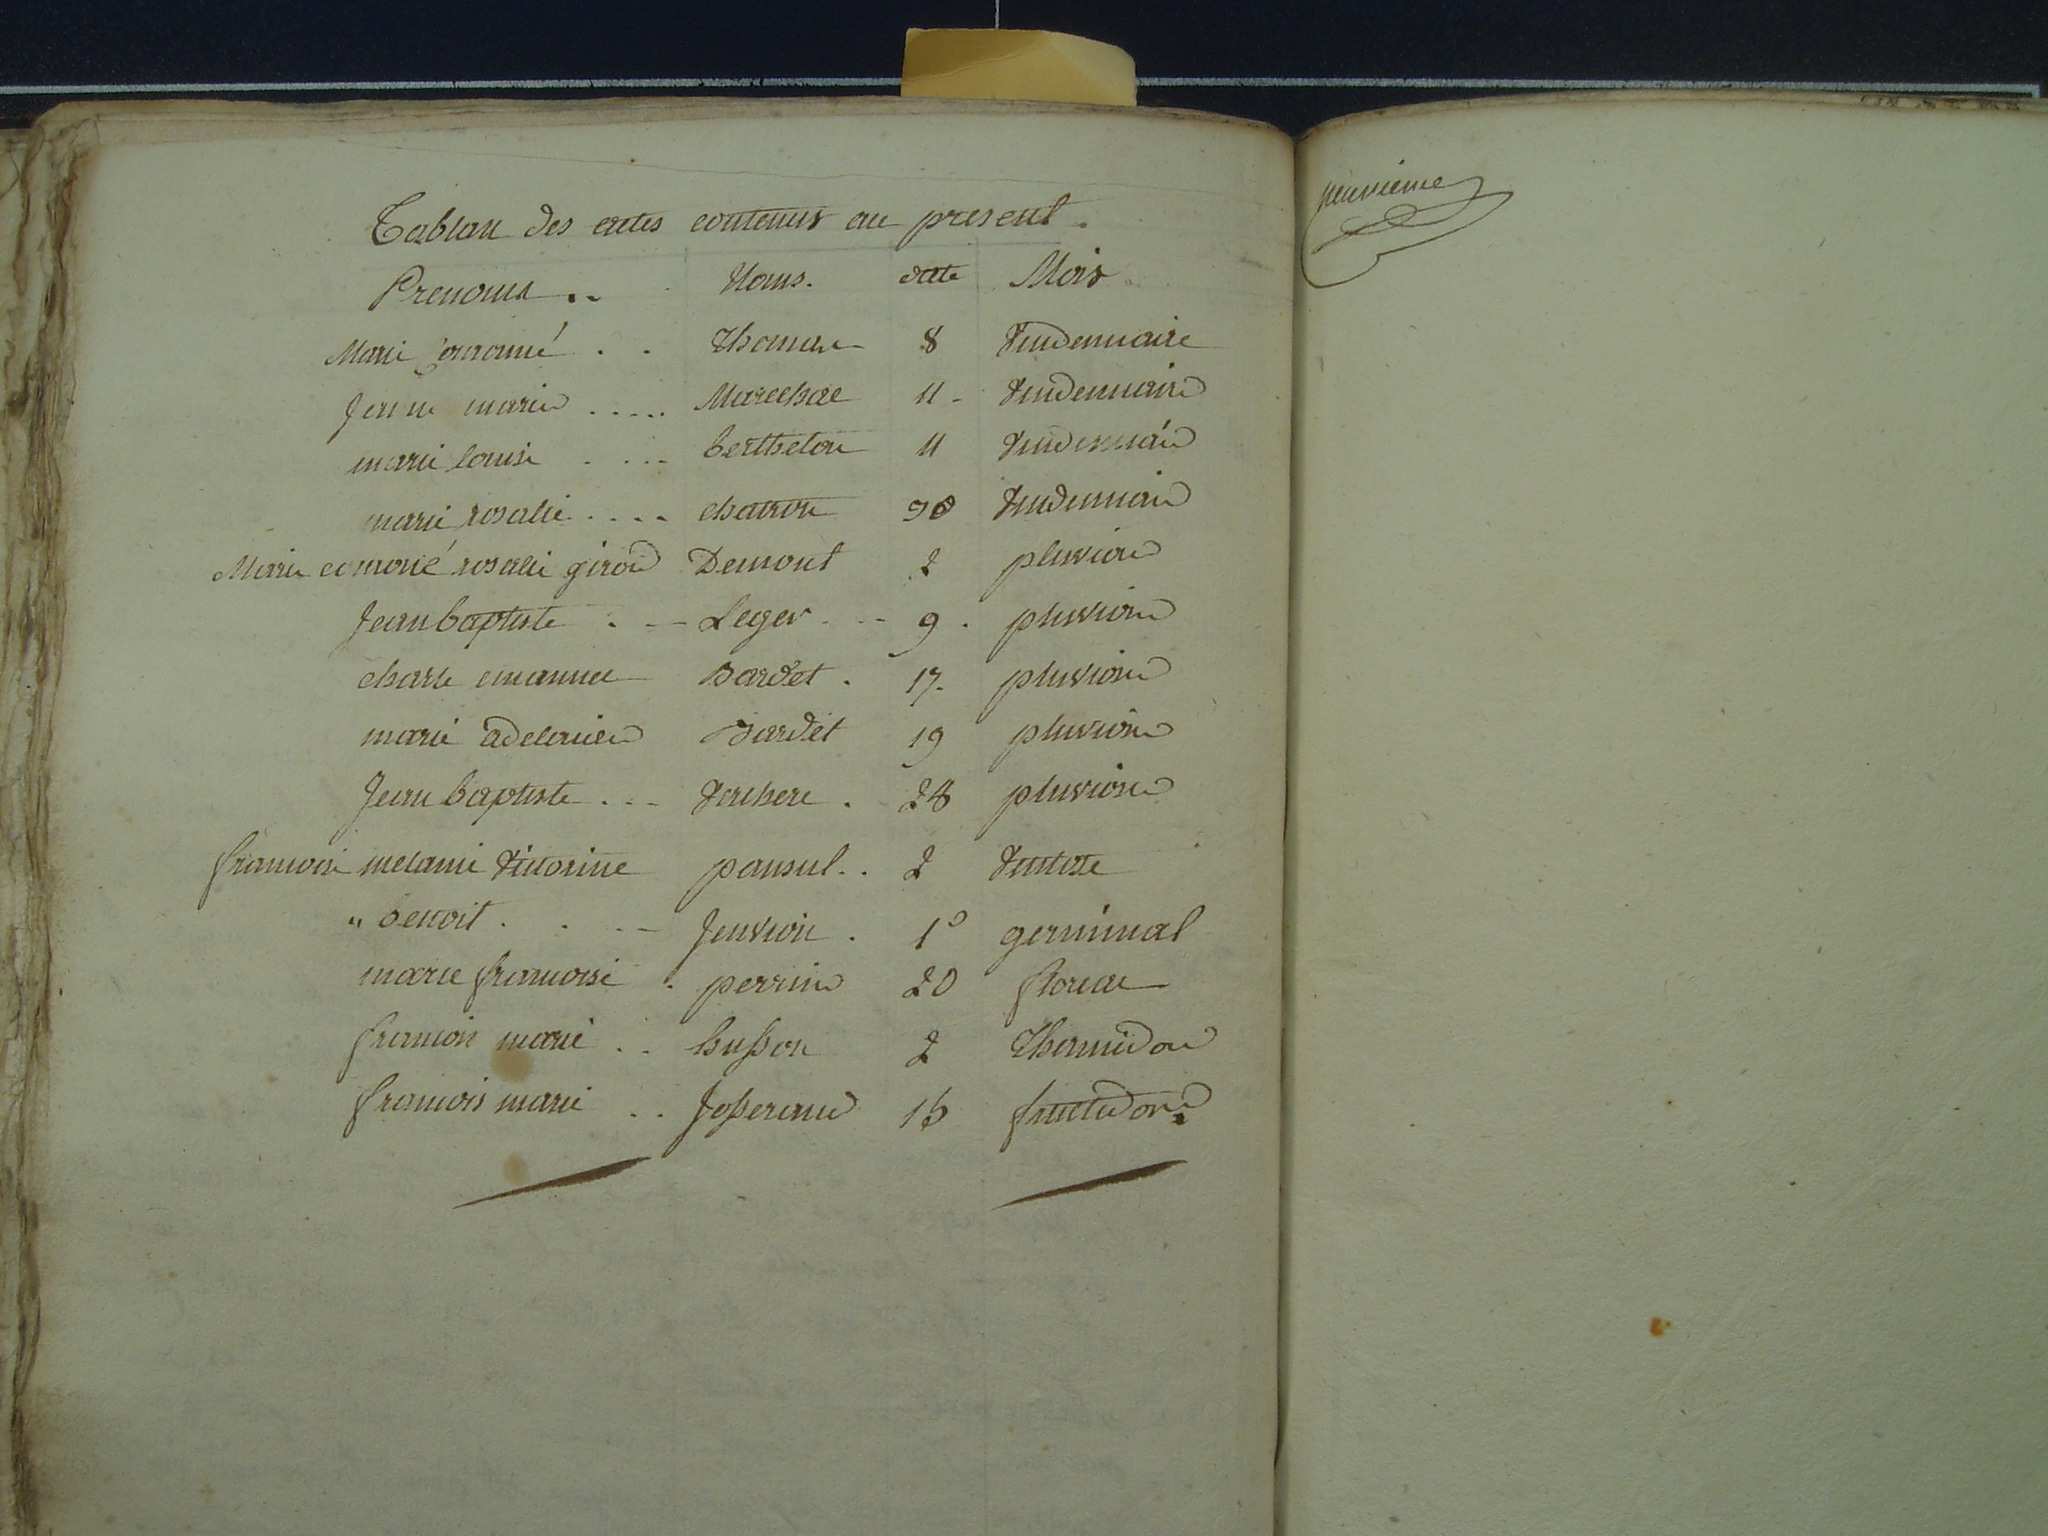 Tablau des actes contenus au present.
Prenoms .. Noms. date Mois
Marie Thomas 8 Vendemiaire
Jeanne marie ..... Marechal 11 - Vendemiaire
marie louise .... berthelon 11 Vendemiaire
marie rosalie .... chatron Vendemiaire
Marie rosalie girod Demont 2 pluviose
Jean baptiste . -- Leger -- 9 . pluviose
charle emanuel Bardet . 17. pluviose
marie adelaide Bardet 19 pluviose
Jean baptiste ... . 28 pluviose
francoise melanie Victorine pansul .. 2 Ventose
" benoit . . -- Jeuvion . 1º germinal
marie francoise . perrin 20 floreal
francois marie .. husson 2 Thermidor
francois marie .. Josserand 16 fructidor.
neuvieme